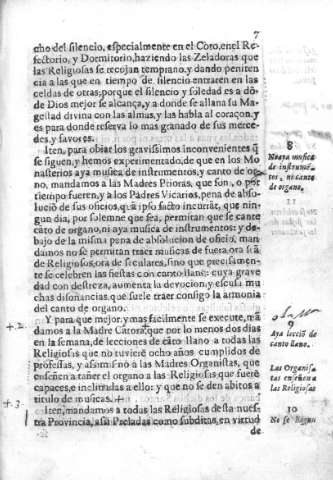 7
cho del silencio, especialmente en el Coro, en el Re-
fectorio, y Dormitorio, haziendo las Zeladoras que
las Religiosas se recojan temprano, y dando peniten
cia a las que en tiempo de silencio entraren en las
celdas de otras; porque el silencio y soledad es a dō-
de Dios mejor se alcança, y a donde se allana su Ma-
gestad divina con las almas, y las habla al coraçon, y
es para donde reserva lo mas granado de sus merce-
des, y favores.
Iten, para obiar los gravissimos inconvenientes q̄
se siguen, y hemos experimentado, de que en los Mo
nasterios aya musica de instrumentos, y canto de or-
no, mandamos a las Madres Prioras, que son, o por
tiempo fueren, y a los Padres Vicarios, pena de abso-
lució de sus oficios, q̄ a ipso facto incurrāt, que nin-
gun dia, por solemne que sea, permitan que se cante
cato de organo, ni aya musica de instrumentos: y de-
bajo de la misma pena de absolucion de oficio, man-
damos no se permitan traer musicas de fuera, ora seā
de Religiosos, ora de seculares, sino que precisamen-
te se celebren las fiestas con canto llano: cuya grave
dad con destreza, aumenta la devocion, y escusa mu
chas disonancias, que suele traer consigo la armonia
del canto de organo.
Y para que mejor, y mas facilmente se execute, mā
damos a la Madre Cātora, que por lo menos dos dias
en la semana, de lecciones de cāto llano a todas las
Religiosas que no tuvierē ocho años cumplidos de
professas, y assimismo a las Madres Organistas, que
enseñen a tañer el organo a las Religiosas que fuerē
capaces, e inclinadas a ello: y que no se den abitos a
titulo de musicas.
Iten, mandamos a todas las Religiosas desta nues-
tra Provincia, assi Preladas como subditas, en virtud
de
8
No aya musica
de instrumē-
tos, ni canto
de organo.
9
Aya lecció de
canto llano.
Las Organis-
tas enseñen a
las Religiosas
10
No se
+.2.
+.3.